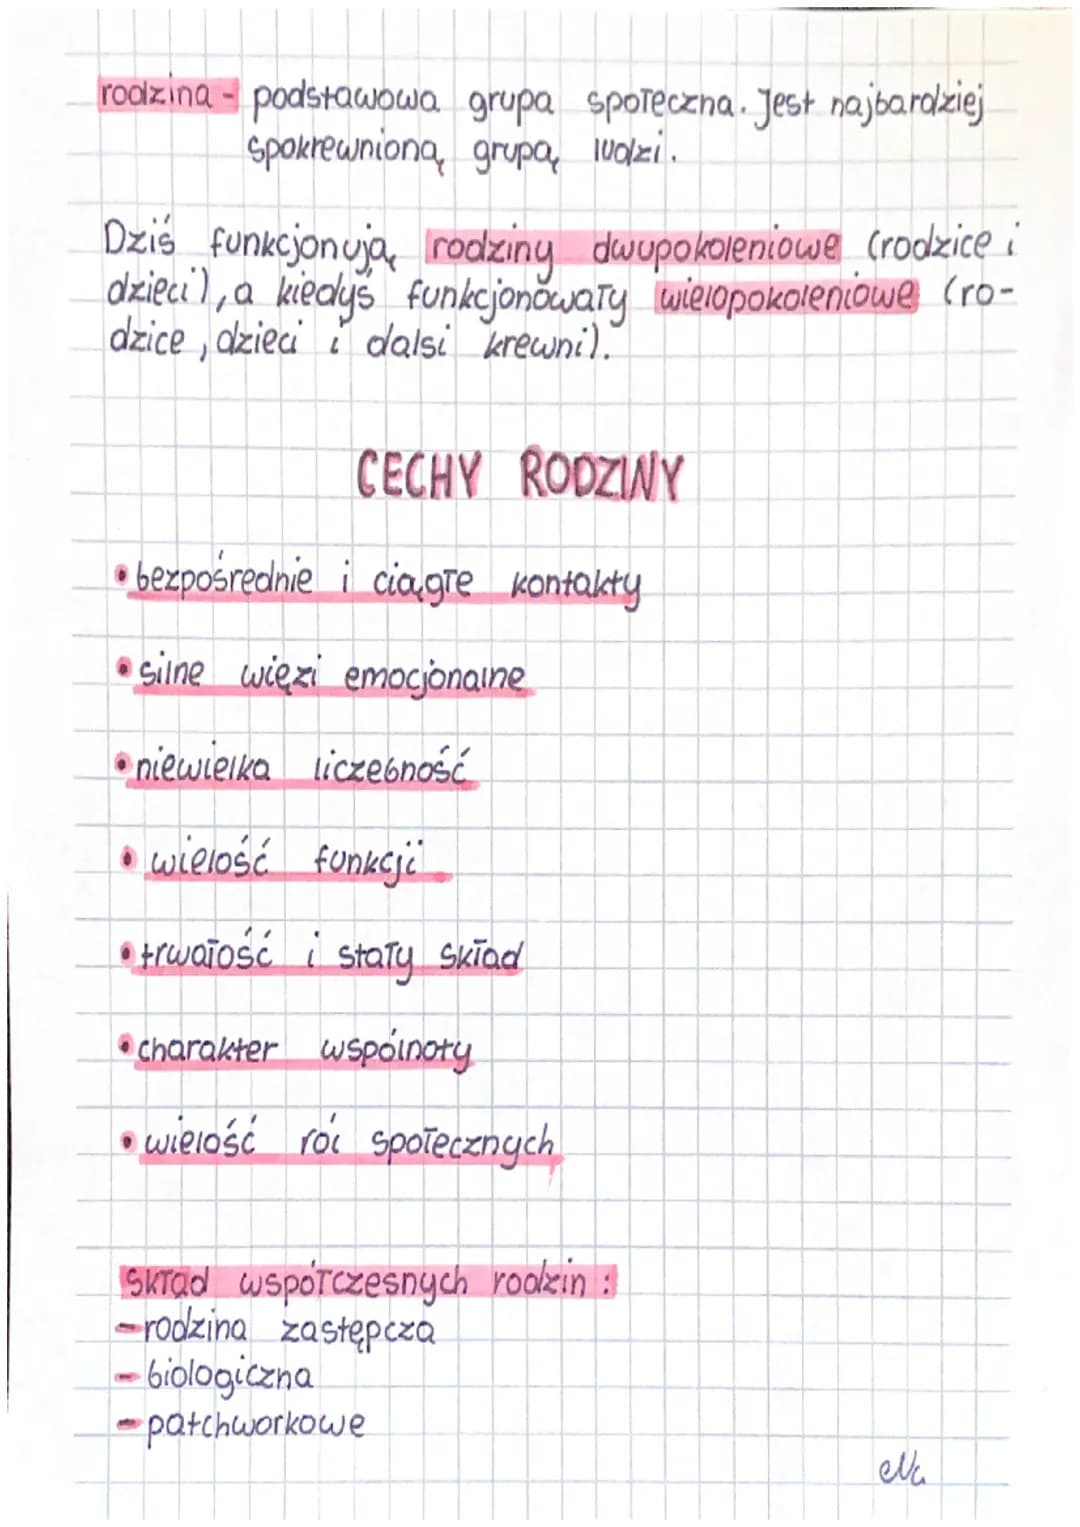 rodzina - podstawowa grupa społeczna. Jest najbardziej
spokrewnioną grupą ludzi.
Dziś funkcjonują rodziny dwupokoleniowe (rodzice i
dzieci), a kiedyś funkcjonowały wielopokoleniowe (ro-
dzice, dzieci i dalsi krewni).
CECHY RODZINY
• bezpośrednie i ciągłe kontakty
• silne więzi emocjonalne
• niewielka liczebność
• wielość funkcji
• trwałość i stały skład
• charakter wspólnoty
• wielość ról społecznych
Skład współczesnych rodzin:
- rodzina zastępcza
- biologiczna
- patchworkowe